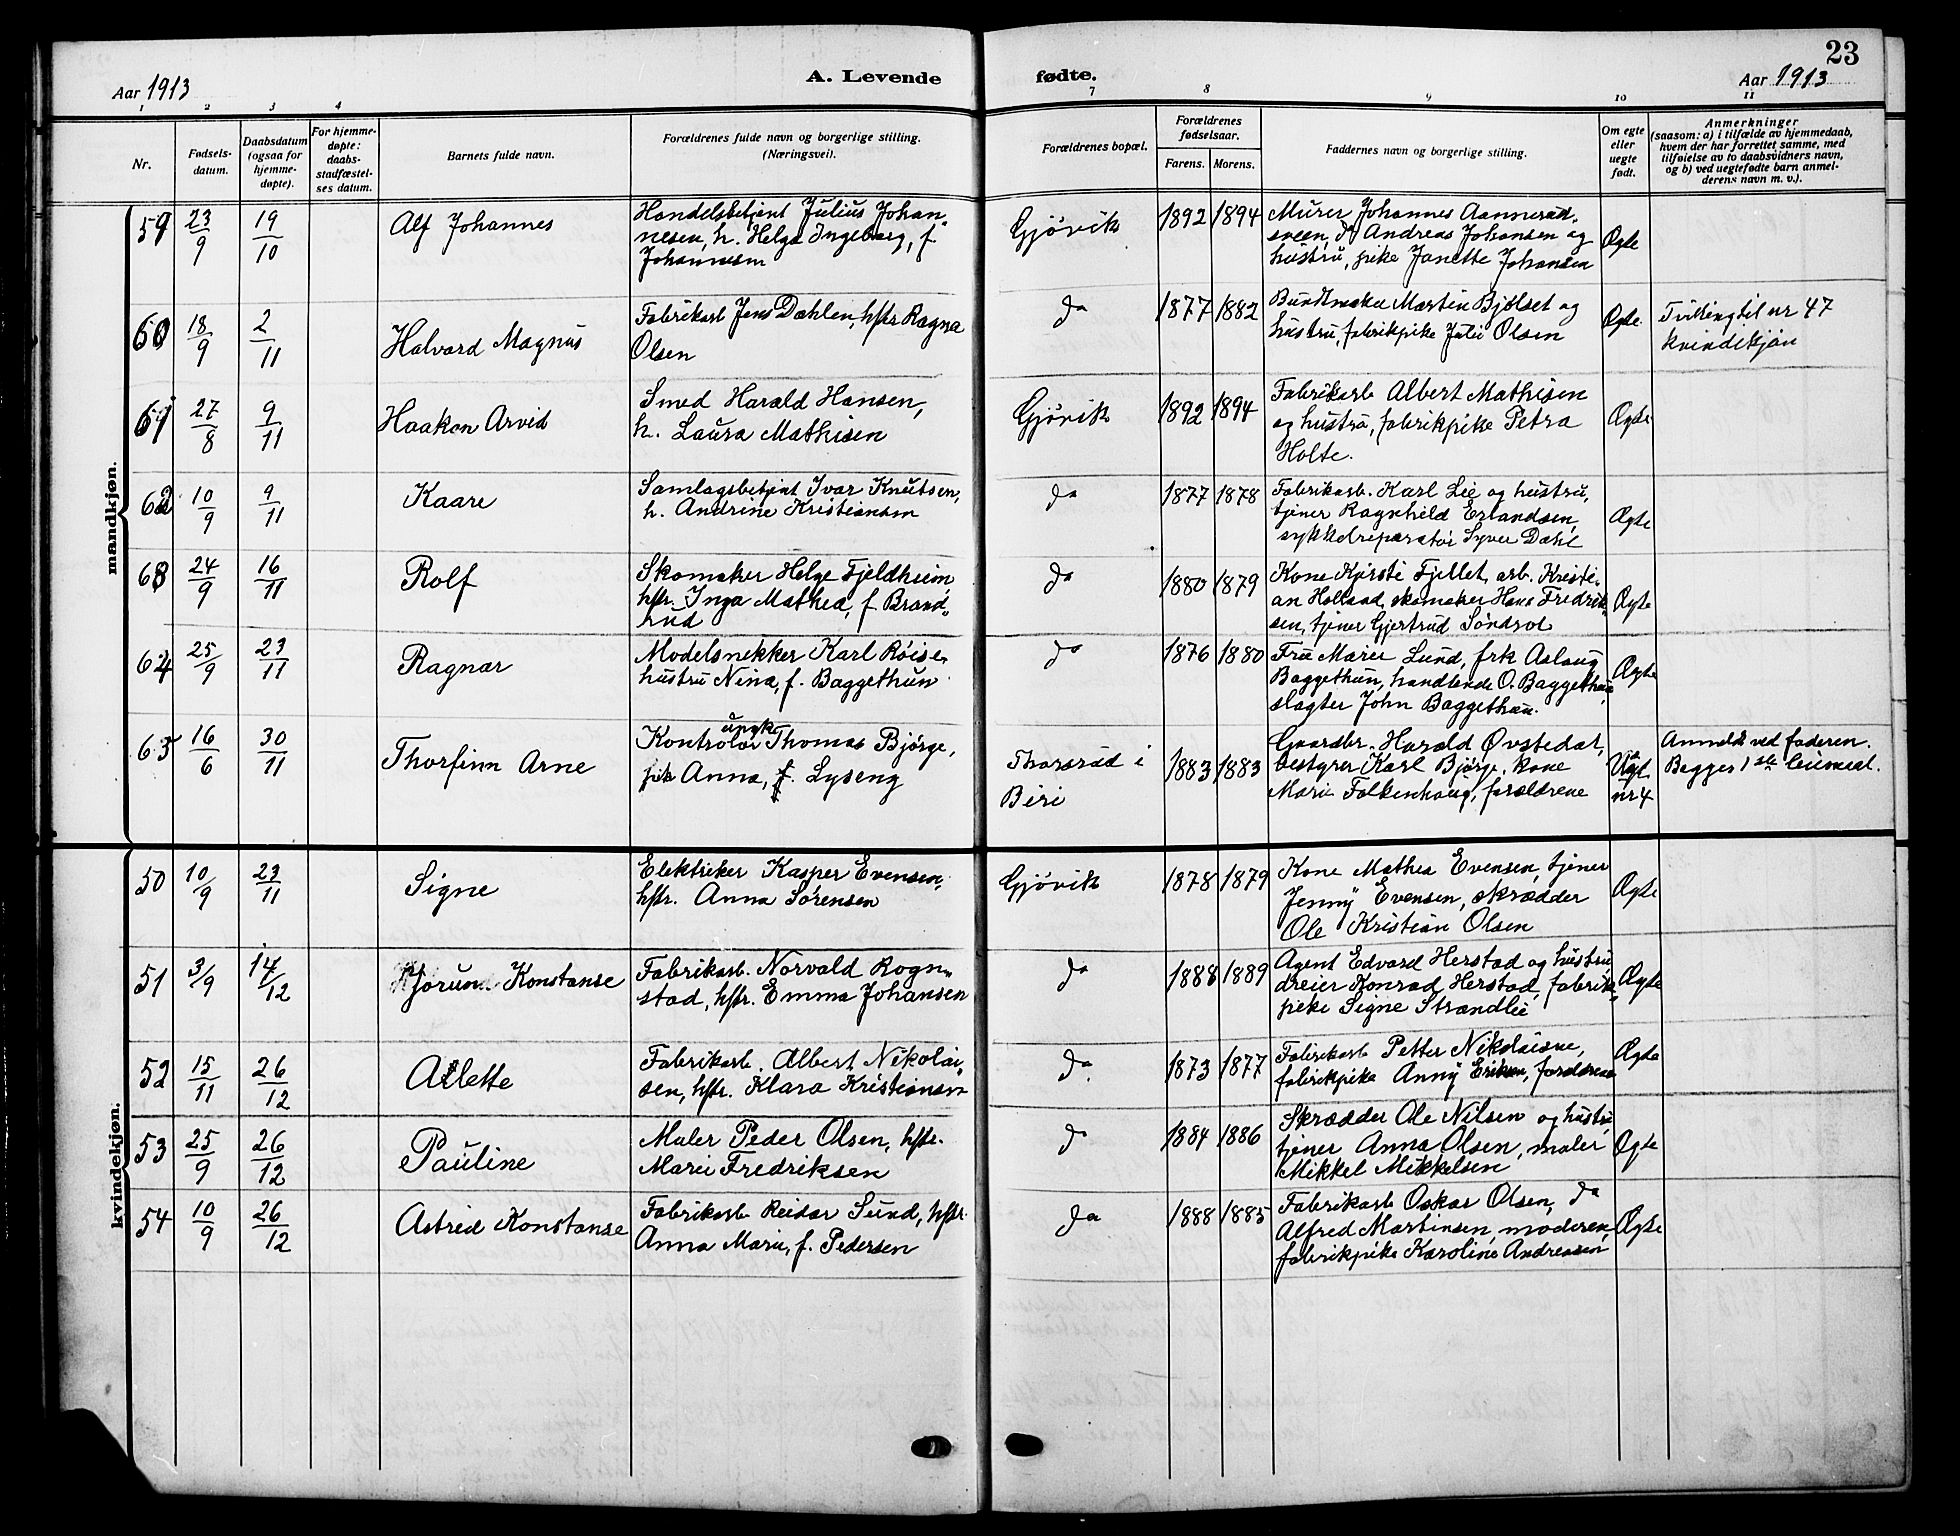 23
Aar 1913
A. Levende
fødte.
Aar 1913
1 2 3 4 7 8 9 10 11
Nr.
Fødsels-
datum.
Daabsdatum
(ogsaa for
hjemme-
døpte).
For hjemme-
døpte:
daabs-
stadfæstel-
ses datum.
Barnets fulde navn.
Forældrenes fulde navn og borgerlige stilling.
(Næringsvei).
Forældrenes bopæl.
Forældrenes
fødselsaar.
Farens. Morens.
Faddernes navn og borgerlige stilling.
Om egte
eller
uegte
født.
Anmerkninger
(saasom: a) i tilfælde av hjemmedaab,
hvem der har forrettet samme, med
tilføielse av to daabsvidners navn,
og b) ved uegtefødte barn anmel-
derens navn m. v.).
mandkjøn.
59 23/9 19/10 Alf Johannes
Handelsbetjent Julius Johan-
nesen, h. Helga Ingeborg, f.
Johannesen
Gjövik 1892 1894
Murer Johannes Aannerud-
sveen, Andreas Johansen og
hustru, pike Janette Johansen
Ægte
60 18/9 2/11 Halvard Magnus
Fabrikarb Jens Dæhlen, hstr Ragna
Olsen
da 1877 1882
Buntmaker Martin Bjölset og
hustru, fabrikpike Julie Olsen
Ægte
Tvilling til nr 47
kvindekjön
61 27/8 9/11 Haakon Arvid
Smed Harald Hansen,
h. Laura Mathisen
Gjövik 1892 1894
Fabrikarb Albert Mathisen
og hustru, fabrikpike Petra
Holte.
Ægte
62 10/9 9/11 Kaare
Samlagsbetjent Ivar Knutsen,
h. Andrine Kristiansen
da 1877 1878
Fabrikarb. Karl Lie og hustru,
tjener Ragnhild Erlandsen,
sykkelreparatör Syver Dæhl
Ægte
63 24/9 16/11 Rolf
Skomaker Helge Fjeldheim
hstr. Inga Mathea, f. Brand-
lud
da 1880 1879
Kone Kjersti Fjellet, arb. Kristi-
an Holland, skomaker Hans Fredrik-
sen, tjener Gjertrud Söndrol
Ægte
64 25/9 23/11 Ragnar
Modelsnekker Karl Röise,
hustru Nina, f. Baggethun
da 1876 1880
Fru Marie Lund, frk Aslaug
Baggethun, handlende O. Baggethun,
slagter John Baggethun.
Ægte
65 16/6 30/11 Thorfinn Arne
ungk.
Kontrolör Thomas Bjørge,
pik Anna, f. Lyseng
Thorsrud i
Biri
1883 1883
Gaardbr. Harald Øvstedal,
bestyrer Karl Bjørge, kone
Marie Falkenhaug, forældrene
Uægt.
nr 4
Anmeldt ved faderen.
Begges 1ste leiemaal.
kvindekjøn.
50 10/9 23/11 Signe
Elektriker Kasper Evensen,
hstr. Anna Sörensen
Gjövik 1878 1879
Kone Mathea Evensen, tjener
Jenny Evensen, skrædder
Ole Kristian Olsen
Ægte
51 3/9 14/12 Jörun Konstanse
Fabrikarb. Norvald Rogn-
stad, hstr. Emma Johansen
da 1888 1889
Agent Edvard Herstad og hustru
dreier Konrad Herstad, fabrik-
pike Signe Strandlie
Ægte
52 15/11 26/12 Allette
Fabrikarb. Albert Nikolai-
sen, hstr. Klara Kristiansen
da 1873 1877
Fabrikarb Petter Nikolaisne,
fabrikpike Anny Eriksen, forældrene
Ægte
53 25/9 26/12 Pauline
Maler Peder Olsen, hstr.
Marie Fredriksen
da 1884 1886
Skrædder Ole Nilsen og hustru
tjener Anna Olsen, maler
Mikkel Mikkelsen
Ægte
54 10/9 26/12 Astrid Konstanse
Fabrikarb Reidar Sund, hstr.
Anna Marie, f. Pedersen
da 1888 1885
Fabrikarb Oskar Olsen, da
Alfred Martinsen, moderen,
fabrikpike Karoline Andreasen
Ægte